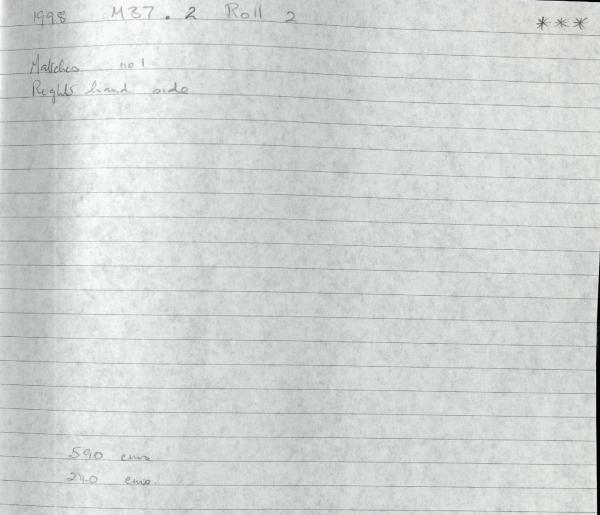 1998 M37.2 Roll 2 ***
Matches no 1
Right hand side
590 cms
240 cms.